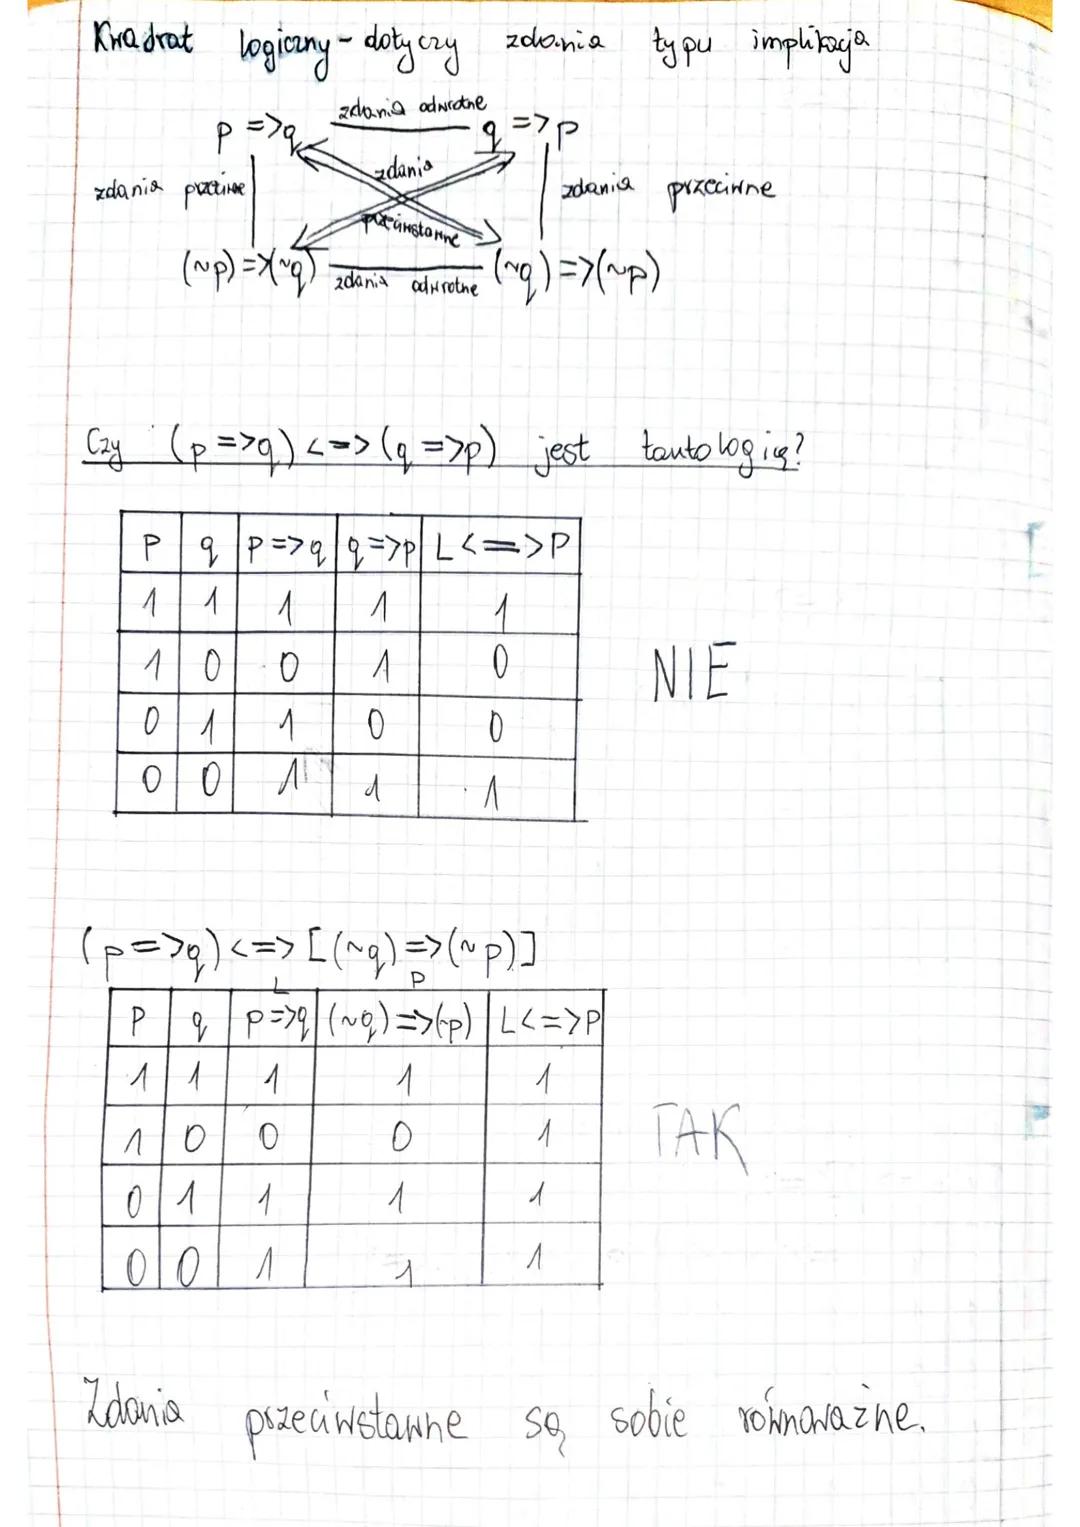 Kwadrat logiczny - dotyczy zdania typu implikacja
zdania odwrotne
p => q q => p
zdania
zdania przeciwne zdania przeciwne
przeciwstawne
(~p) => (~q) (~q) => (~p)
zdania odwrotne
Czy (p => q) <=> (q => p) jest tautologią?
p q p => q q => p L <=> P
1 1 1 1 1
1 0 0 1 0
NIE
0 1 1 0 0
0 0 1 1 1
(p => q) <=> [(~q) => (~p)]
L P
p q p => q (~q) => (~p) L <=> P
1 1 1 1 1
1 0 0 0 1
TAK
0 1 1 1 1
0 0 1 1 1
Zdania przeciwstawne są sobie równoważne.